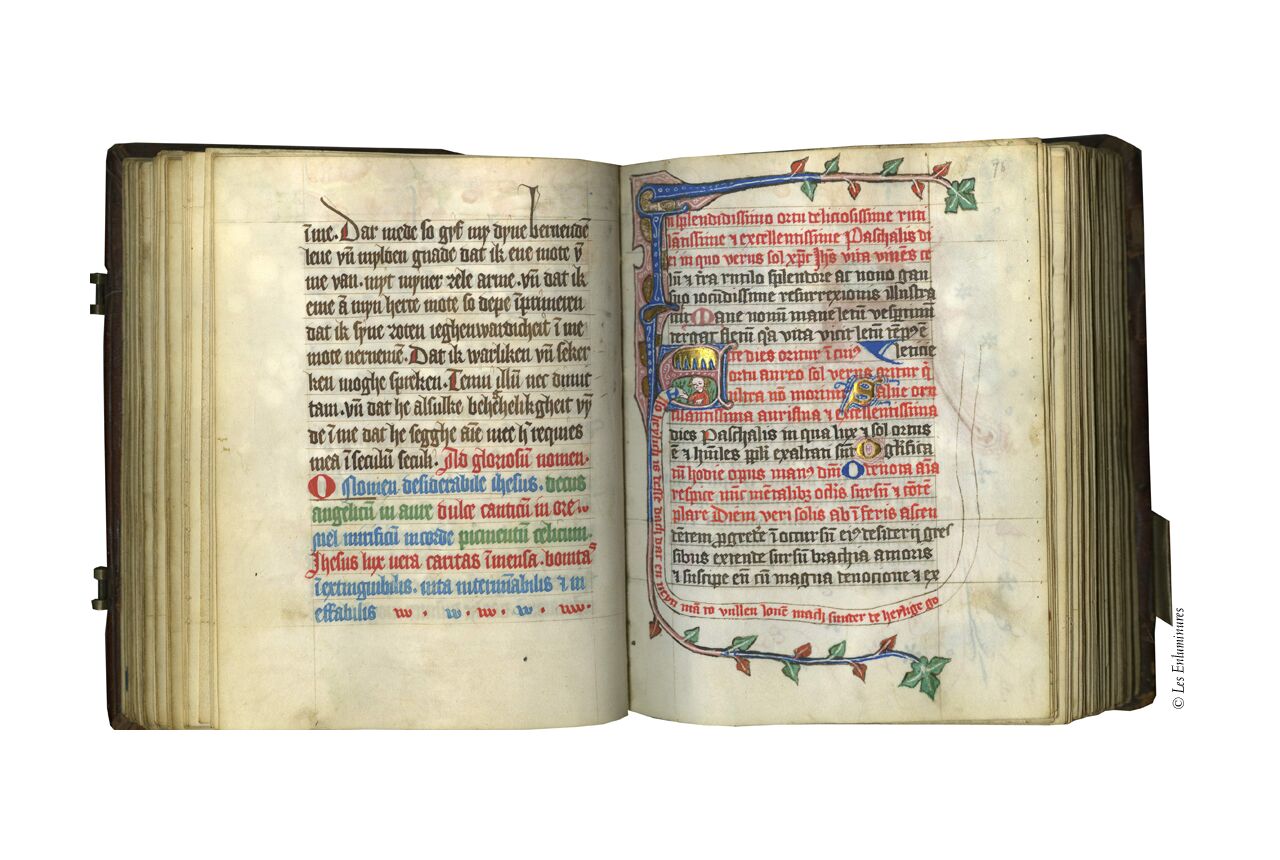 ī me. Dar mede so gyf my dyne bernendē
leue vn̄ mylden gnade dat ik ene mote v̄
me van. myt myner zele arme. vn̄ dat ik
ene ā myn herte mote so depe īprimeren
dat ik syne zoten ieghenwardicheit ī me
mote vernemē. Dat ik warliken vn̄ seker
ken moghe spreken. Tenui illū nec dimit
tam. vn̄ dat he alsulke behēhelikgheit vȳ
de ī me dat he segghe amē nec h̄ requies
mea ī seculū seculi. Ad gloriosū nomen.
O Nomen desiderabile ihesus. decus
angelicū in aure dulce canticū in ore
mel mirificū in corde picmentū celicum.
Jhesus lux uera caritas īmensa. bonitas
īextinguibilis. uita interminabilis & in
effabilis
76
In splendidissimo ortu deliciosissime ruti
lantissime & excellentissime Paschalis di
ei in quo verus sol xp̄c Jhs vita viuēs ce
lū & trā rutilo splendore at nouo gau
dio iocundissime resurrexionis illustra
uit Mane nouum mane letum vespertinū
tergat fletum q̄a vita vicit letū temp̄ ē
Iste dies oritur ī cui9 leticie
ortu aureo sol verus oritur q̄
ultra nō moritur Salue oru
tilantissima aurifina & excellentissima
dies Paschalis in qua lux & sol ortus
ē & hūiles pp̄li exaltati sūt O glifica
tū hodie opus man9 dn̄i O deuota aīa
respice nūc mētalibz oclis sursū & cōtē
plare Diem veri solis ab īferis ascen
dētem p̄grete ī occursū ei9 desiderij gres
sibus extende sursū brachia amoris
& suscipe eū cū magna deuocione & ex
mā to vnllen lone mach sunder de heylige go
© Les Enluminures